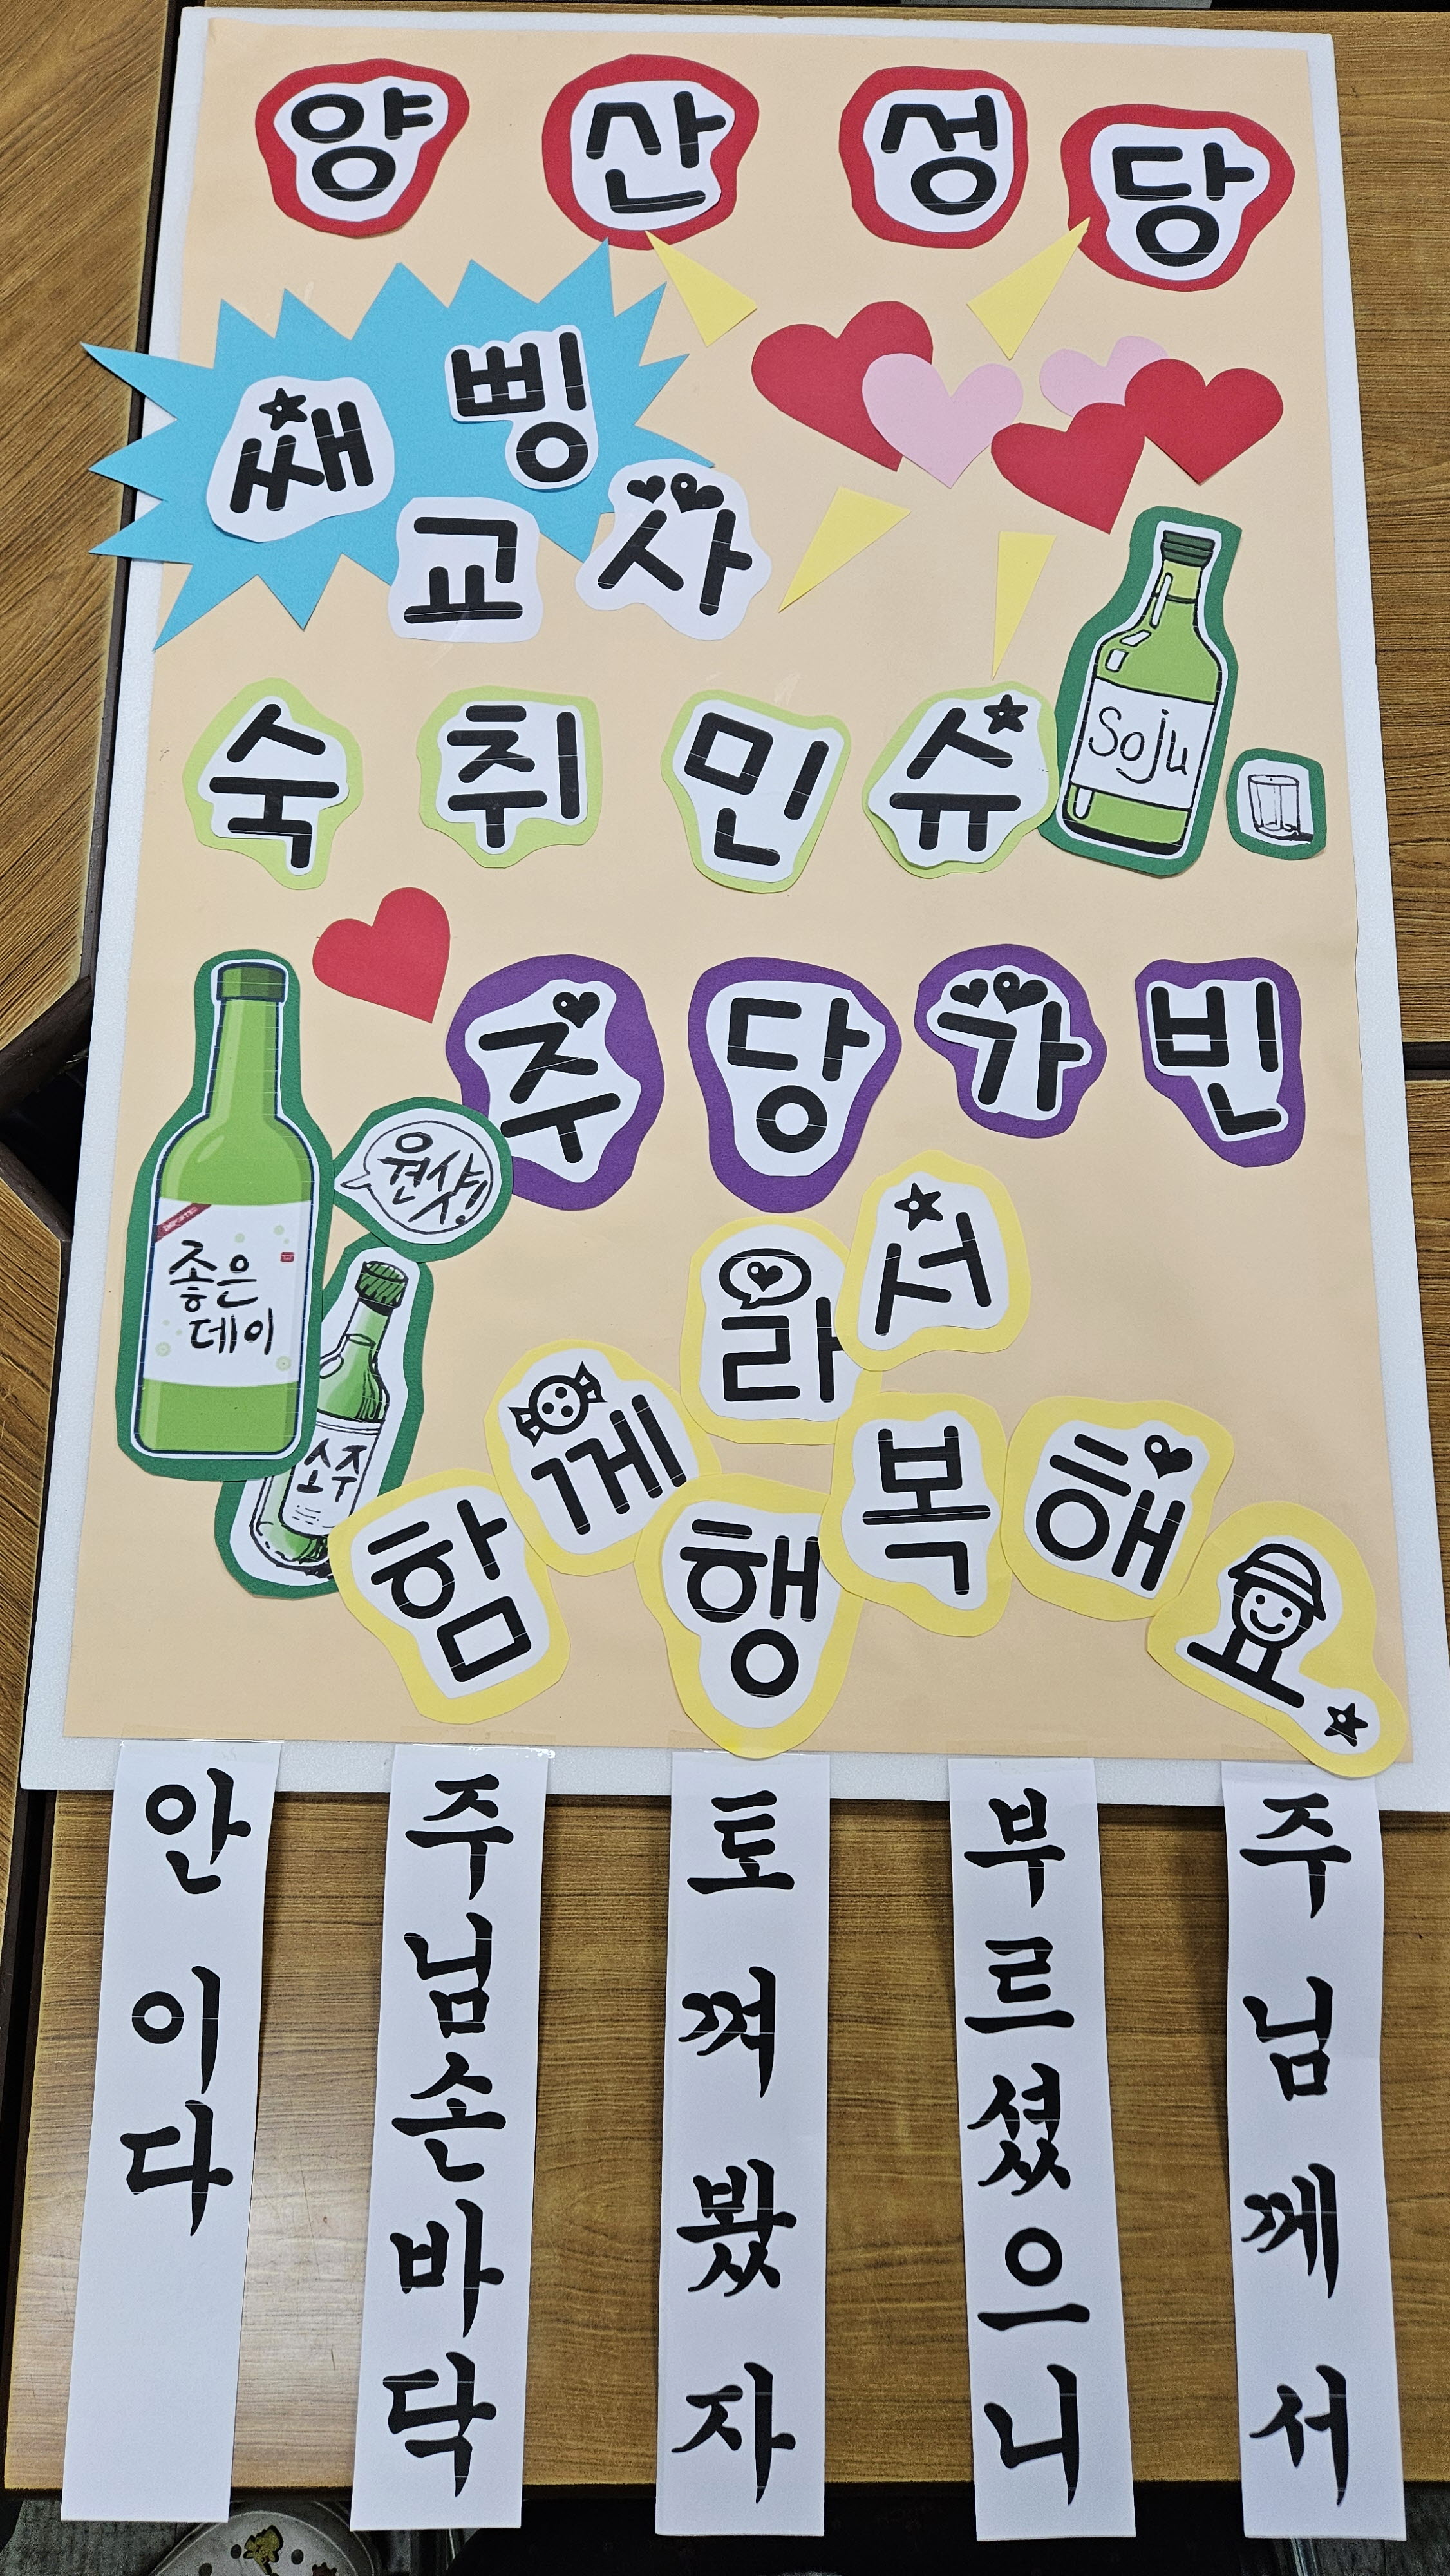 양산성당
쌔삥
교사
숙취민슈
Soju
주당가빈
원샷!
좋은
데이
소주
함께라서
행복해요
주님께서
부르셨으니
토껴봤자
주님손바닥
안이다